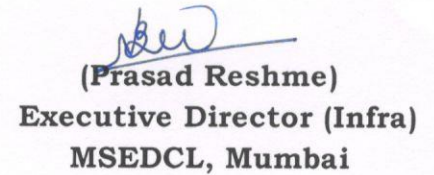 (Prasad Reshme)
Executive Director (Infra)
MSEDCL, Mumbai